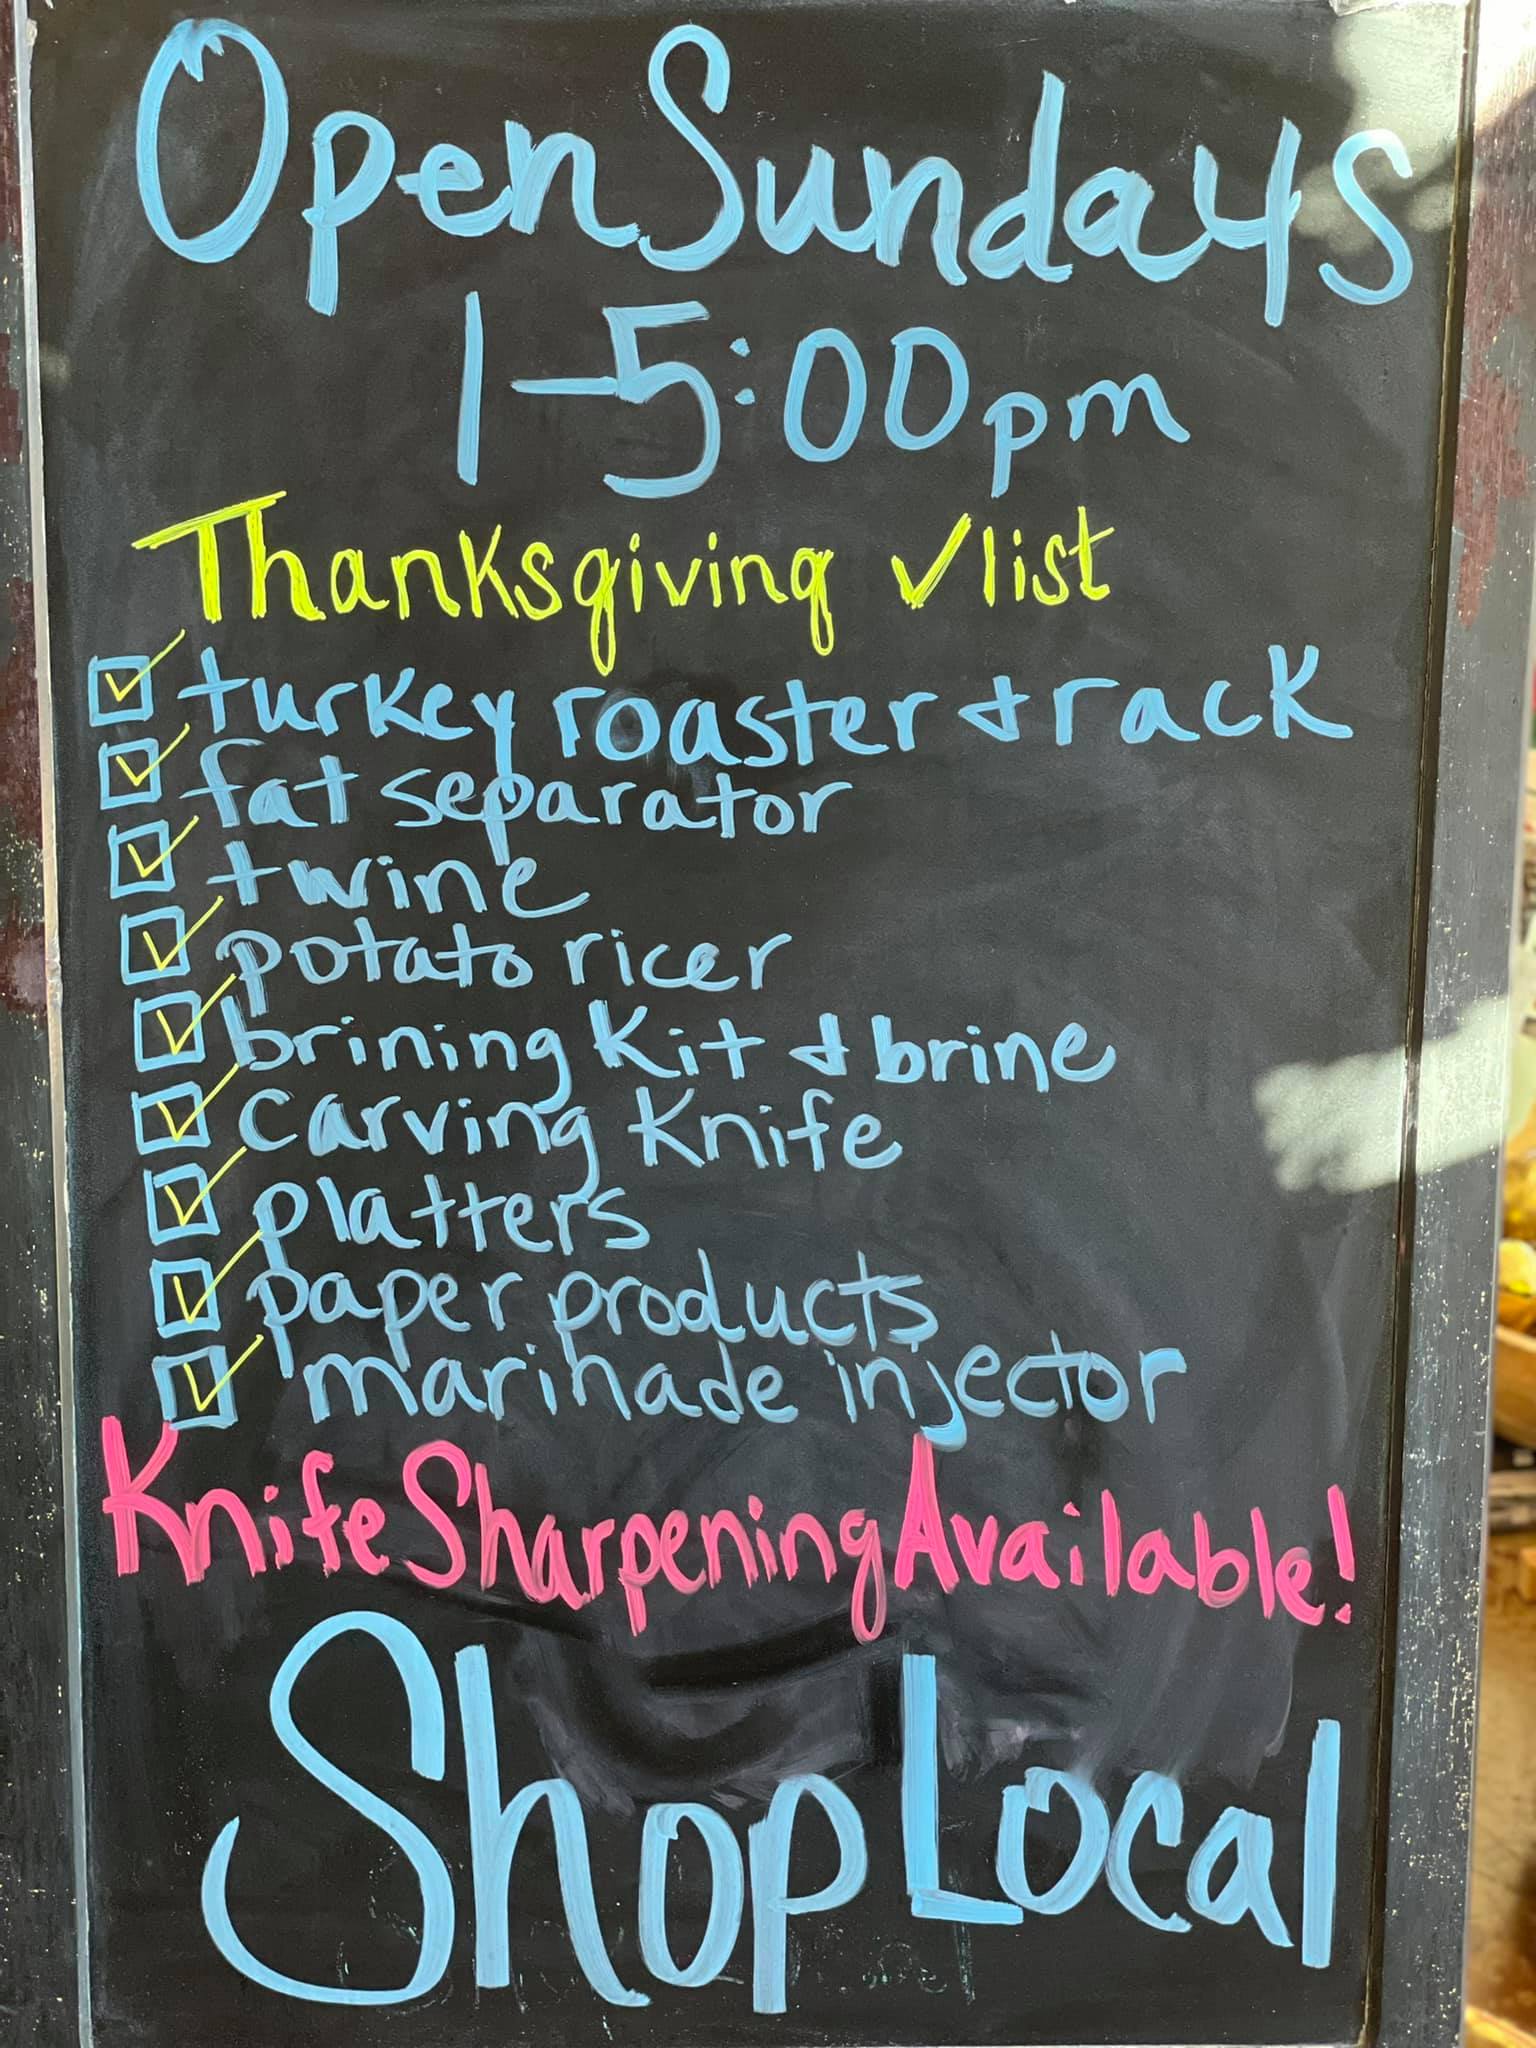 Open Sundays
1-5:00pm
Thanksgiving ✓list
☑ turkey roaster & rack
☑ fat separator
☑ twine
☑ potato ricer
☑ brining kit & brine
☑ carving knife
☑ platters
☑ paper products
☑ marinade injector
Knife Sharpening Available!
Shop Local